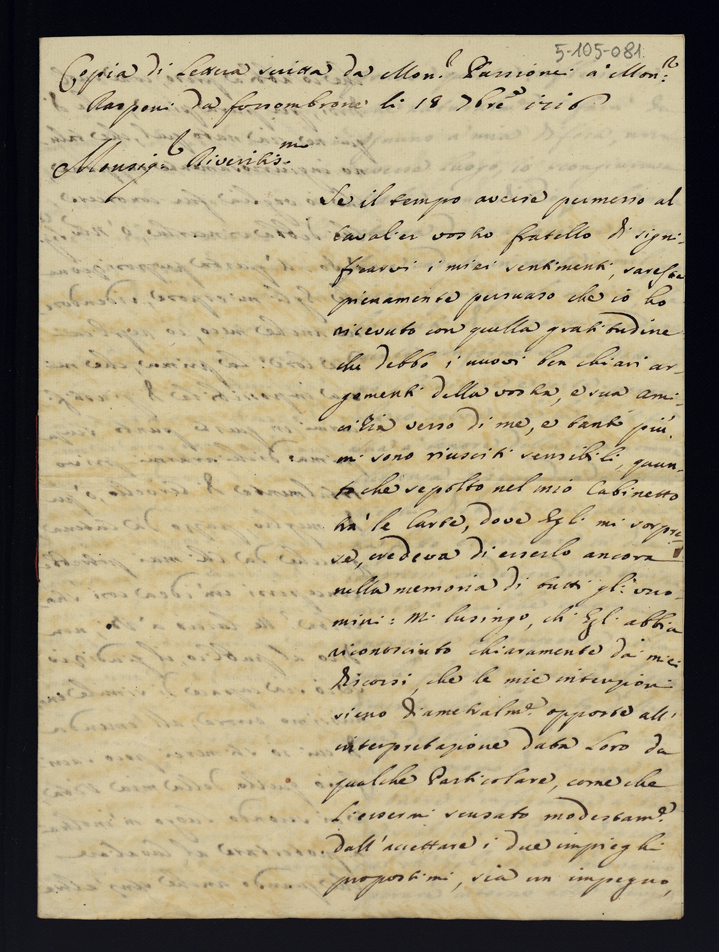 5-105-081
Copia di Lettera scritta da Mon.r Passionei à Mon.r
Rasponi da fossombrone li 18 7bre 1716.
Monsig.r Riveritis.mo
Se il tempo avesse permesso al
Cavalier vostro fratello di signi-
ficarvi i miei sentimenti, sareste
pienamente persuaso che io ho
ricevuto con quella gratitudine
che debbo i nuovi ben chiari ar-
gomenti della vostra, e sua ami-
cizia verso di me, e tanto più
mi sono riusciti sensibili, quan-
to che sepolto nel mio Cabinetto
trà le Carte, dove Egli mi sorpre-
se, credeva di esserlo ancora
nella memoria di tutti gli uo-
mini: Mi lusingo, ch'Egli abbia
riconosciuto chiaramente da' miei
discorsi, che le mie intenzioni
sieno diametralm.e opposte all'
interpretazione data loro da
qualche Particolare, come che
l'essermi scusato modestam.e
dall'accettare i due impieghi
propostimi, sia un impegno,